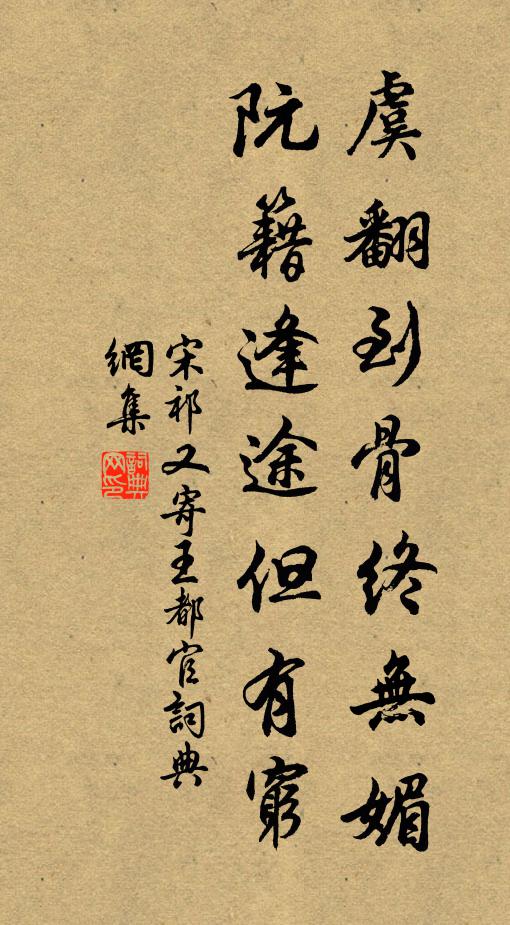 虞翻到骨終無媚
阮籍逢途但有窮
宋祁又寄王都官詞典
網集
詞典
网印